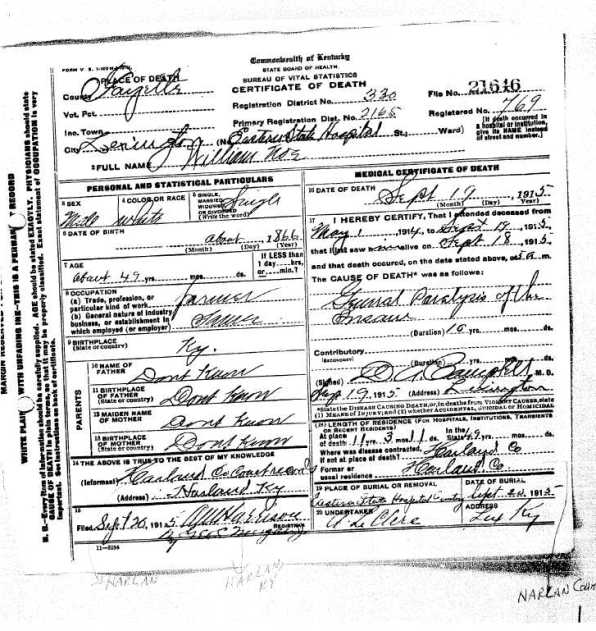 FORM V. S.
Commonwealth of Kentucky
STATE BOARD OF HEALTH
BUREAU OF VITAL STATISTICS
CERTIFICATE OF DEATH
PLACE OF DEATH
County Fayette
Vot. Pct.
Inc. Town
City Lexington (No. Eastern State Hospital St.; Ward)
Registration District No. 330
Primary Registration Dist. No. 2165
File No. 21646
Registered No. 769
[If death occurred in a hospital or institution, give its NAME instead of street and number.]
2 FULL NAME William Noe
PERSONAL AND STATISTICAL PARTICULARS
3 SEX Male
4 COLOR OR RACE white
5 SINGLE, MARRIED, WIDOWED OR DIVORCED (Write the word) Single
6 DATE OF BIRTH about, 1866
(Month) (Day) (Year)
7 AGE about 49 yrs. mos. ds.
If LESS than 1 day....hrs, or.....min.?
8 OCCUPATION
(a) Trade, profession, or particular kind of work farmer
(b) General nature of industry business, or establishment in which employed (or employer) Same
9 BIRTHPLACE (State or country) Ky
PARENTS
10 NAME OF FATHER Dont know
11 BIRTHPLACE OF FATHER (State or country) Dont know
12 MAIDEN NAME OF MOTHER dont know
13 BIRTHPLACE OF MOTHER (State or country) Dont know
14 THE ABOVE IS TRUE TO THE BEST OF MY KNOWLEDGE
(Informant) Harland Co Court records
(Address) Harland Ky
15 Filed Sept 20, 1915
REGISTRAR
MEDICAL CERTIFICATE OF DEATH
16 DATE OF DEATH Sept 19, 1915
(Month) (Day) (Year)
17 I HEREBY CERTIFY, That I attended deceased from
May 1 1914, to Sept 19, 1915
that I last saw alive on Sept 18, 1915
and that death occurred, on the date stated above, at m.
The CAUSE OF DEATH* was as follows:
General Paralysis of the
Insane
(Duration) 10 yrs. mos. ds.
Contributory
(Duration) yrs. mos. ds.
(Signed) M. D.
1915 (Address) Lexington
*State the DISEASE CAUSING DEATH, or, in deaths from VIOLENT CAUSES, state (1) MEANS OF INJURY; and (2) whether ACCIDENTAL, SUICIDAL or HOMICIDAL
18 LENGTH OF RESIDENCE (FOR HOSPITALS, INSTITUTIONS, TRANSIENTS OR RECENT RESIDENTS)
At place of death 11 yrs. 3 mos. 1 ds. In the State yrs. mos. ds.
Where was disease contracted, if not at place of death? Harland Co
Former or usual residence Harland Co
19 PLACE OF BURIAL OR REMOVAL
Eastern State Hospital
DATE OF BURIAL
Sept 1915
20 UNDERTAKER
ADDRESS
Lex Ky
11-3184
HARLAN
HARLAN
KY
HARLAN COUN
WRITE PLAINLY WITH UNFADING INK—THIS IS A PERMANENT RECORD
N. B.—Every item of information should be carefully supplied. AGE should be stated EXACTLY. PHYSICIANS should state
CAUSE OF DEATH in plain terms, so that it may be properly classified. Exact statement of OCCUPATION is very
important. See instructions on back of certificate.